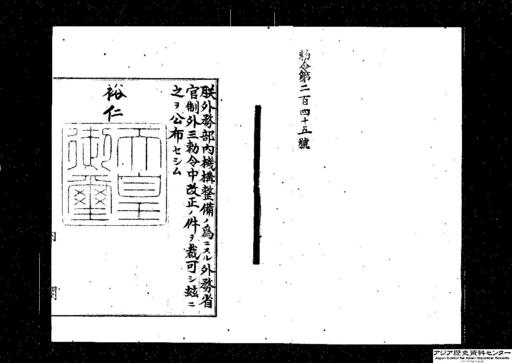 勅令第二百四十五號
朕外務部內機構整備ノ爲ニスル外務省
官制外三勅令中改正ノ件ヲ裁可シ玆ニ
之ヲ公布セシム
裕仁
天皇
御璽
內
閣
アジア歴史資料センター
Japan Center for Asian Historical Records